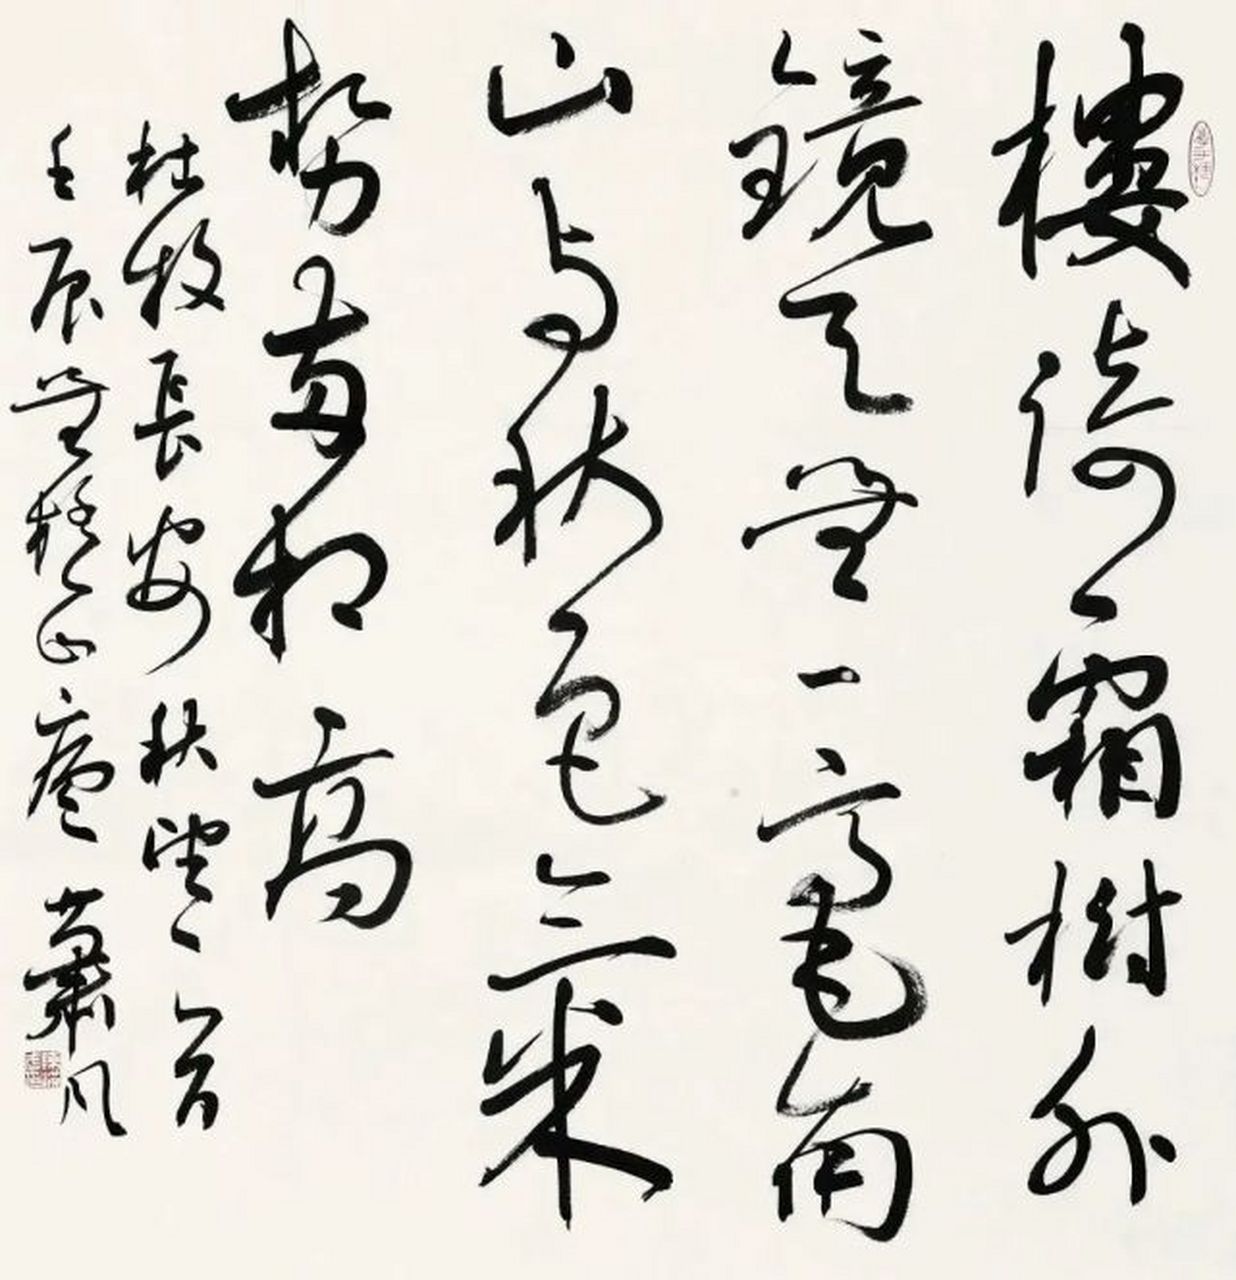 樓倚霜樹外
鏡天無一毫南
山與秋色氣
勢兩相高
杜牧長安秋望一首
壬辰無山廬蕭風